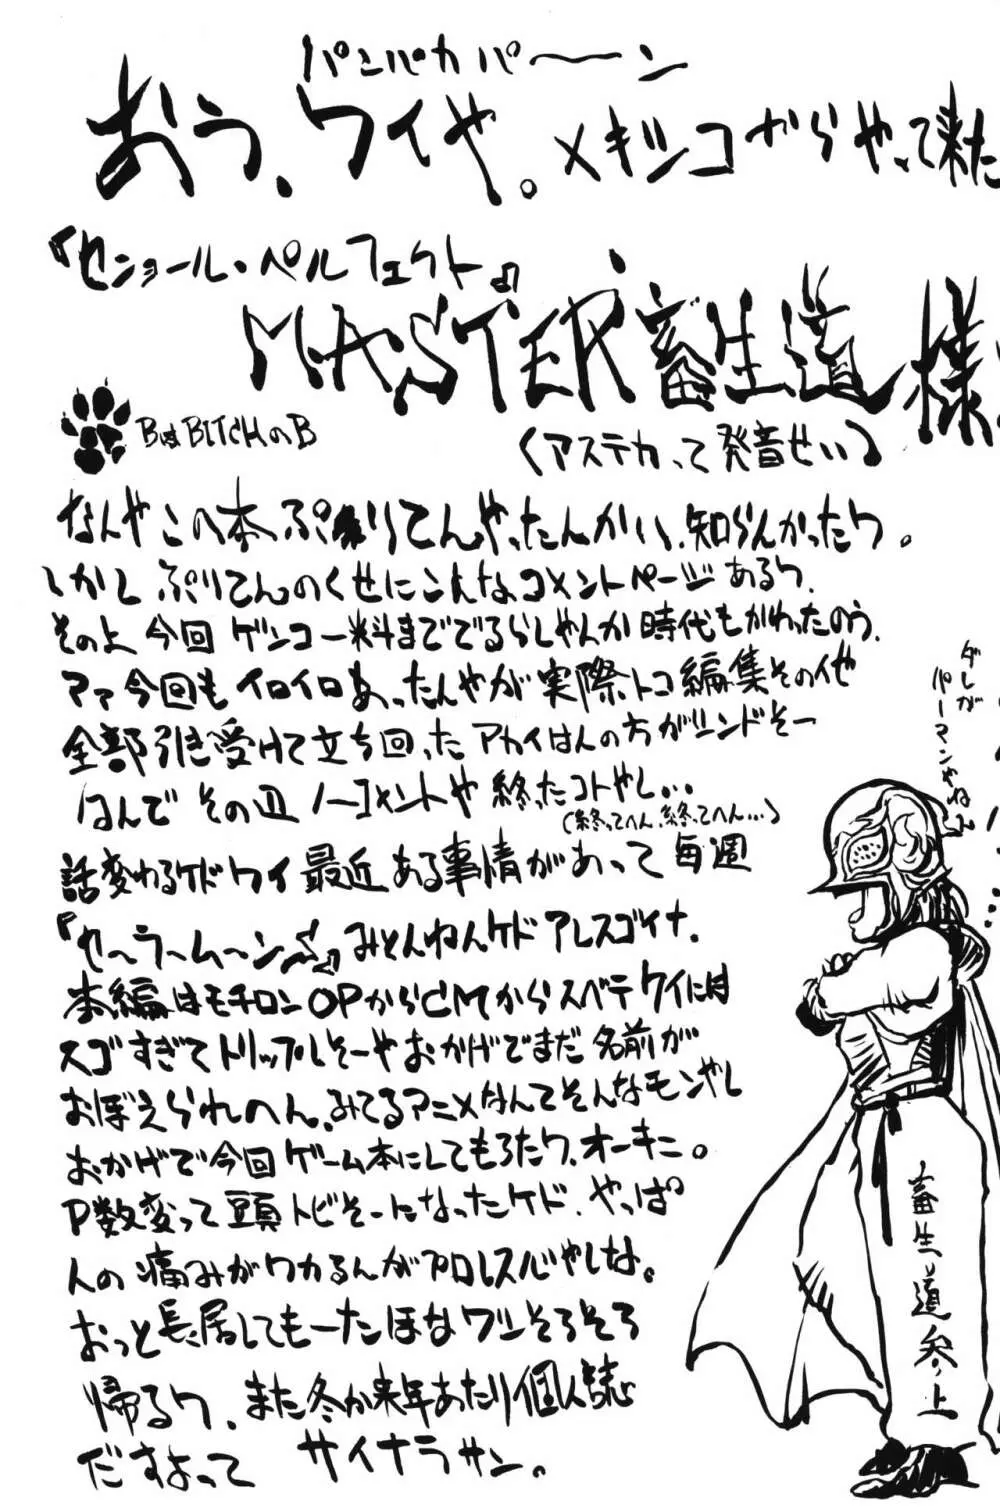 パンパカパーーン
おう、ワイや。メキシコからやって来た
『センョール・ペルフェクト』
MASTER畜生道様
BはBITCHのB
(アステカって発音せい)
なんやこの本、ぷりてんやったんかい、知らんかったワ。
しかし ぷりてんのくせにこんなコメントページあるワ、
その上 今回 ゲンコー料まででるらしやんか 時代もかわったのう、
マァ今回も イロイロあったんやが 実際トコ 編集その他
全部引き受けて立ち回った アカイはんの方がシンドそー
ほんで その辺 ノーコメントや 終ったコトやし…
(終ってへん、終ってへん…)
話変わるケド ワイ 最近 ある事情があって 毎週
『セ〜ラ〜ム〜ンS』みとんねんケド アレスゴイナ、
本編はモチロン OPからCMから スベテ ワイには
スゴすぎて トリップしそーや おかげでまだ 名前が
おぼえられへん、みてるアニメなんてそんなモンやし
おかげで今回 ゲーム本にしてもろたワ、オーキニ。
P数変って 頭 トビそーになったケド、やっぱ
人の 痛みが ワカるんがプロレス心やしな。
おっと 長居してもーた ほな ワシ そろそろ
帰るワ、また冬か来年あたり個人誌
だすよって サイナラサン。
ダレが
パーマンやねん
畜生道参上